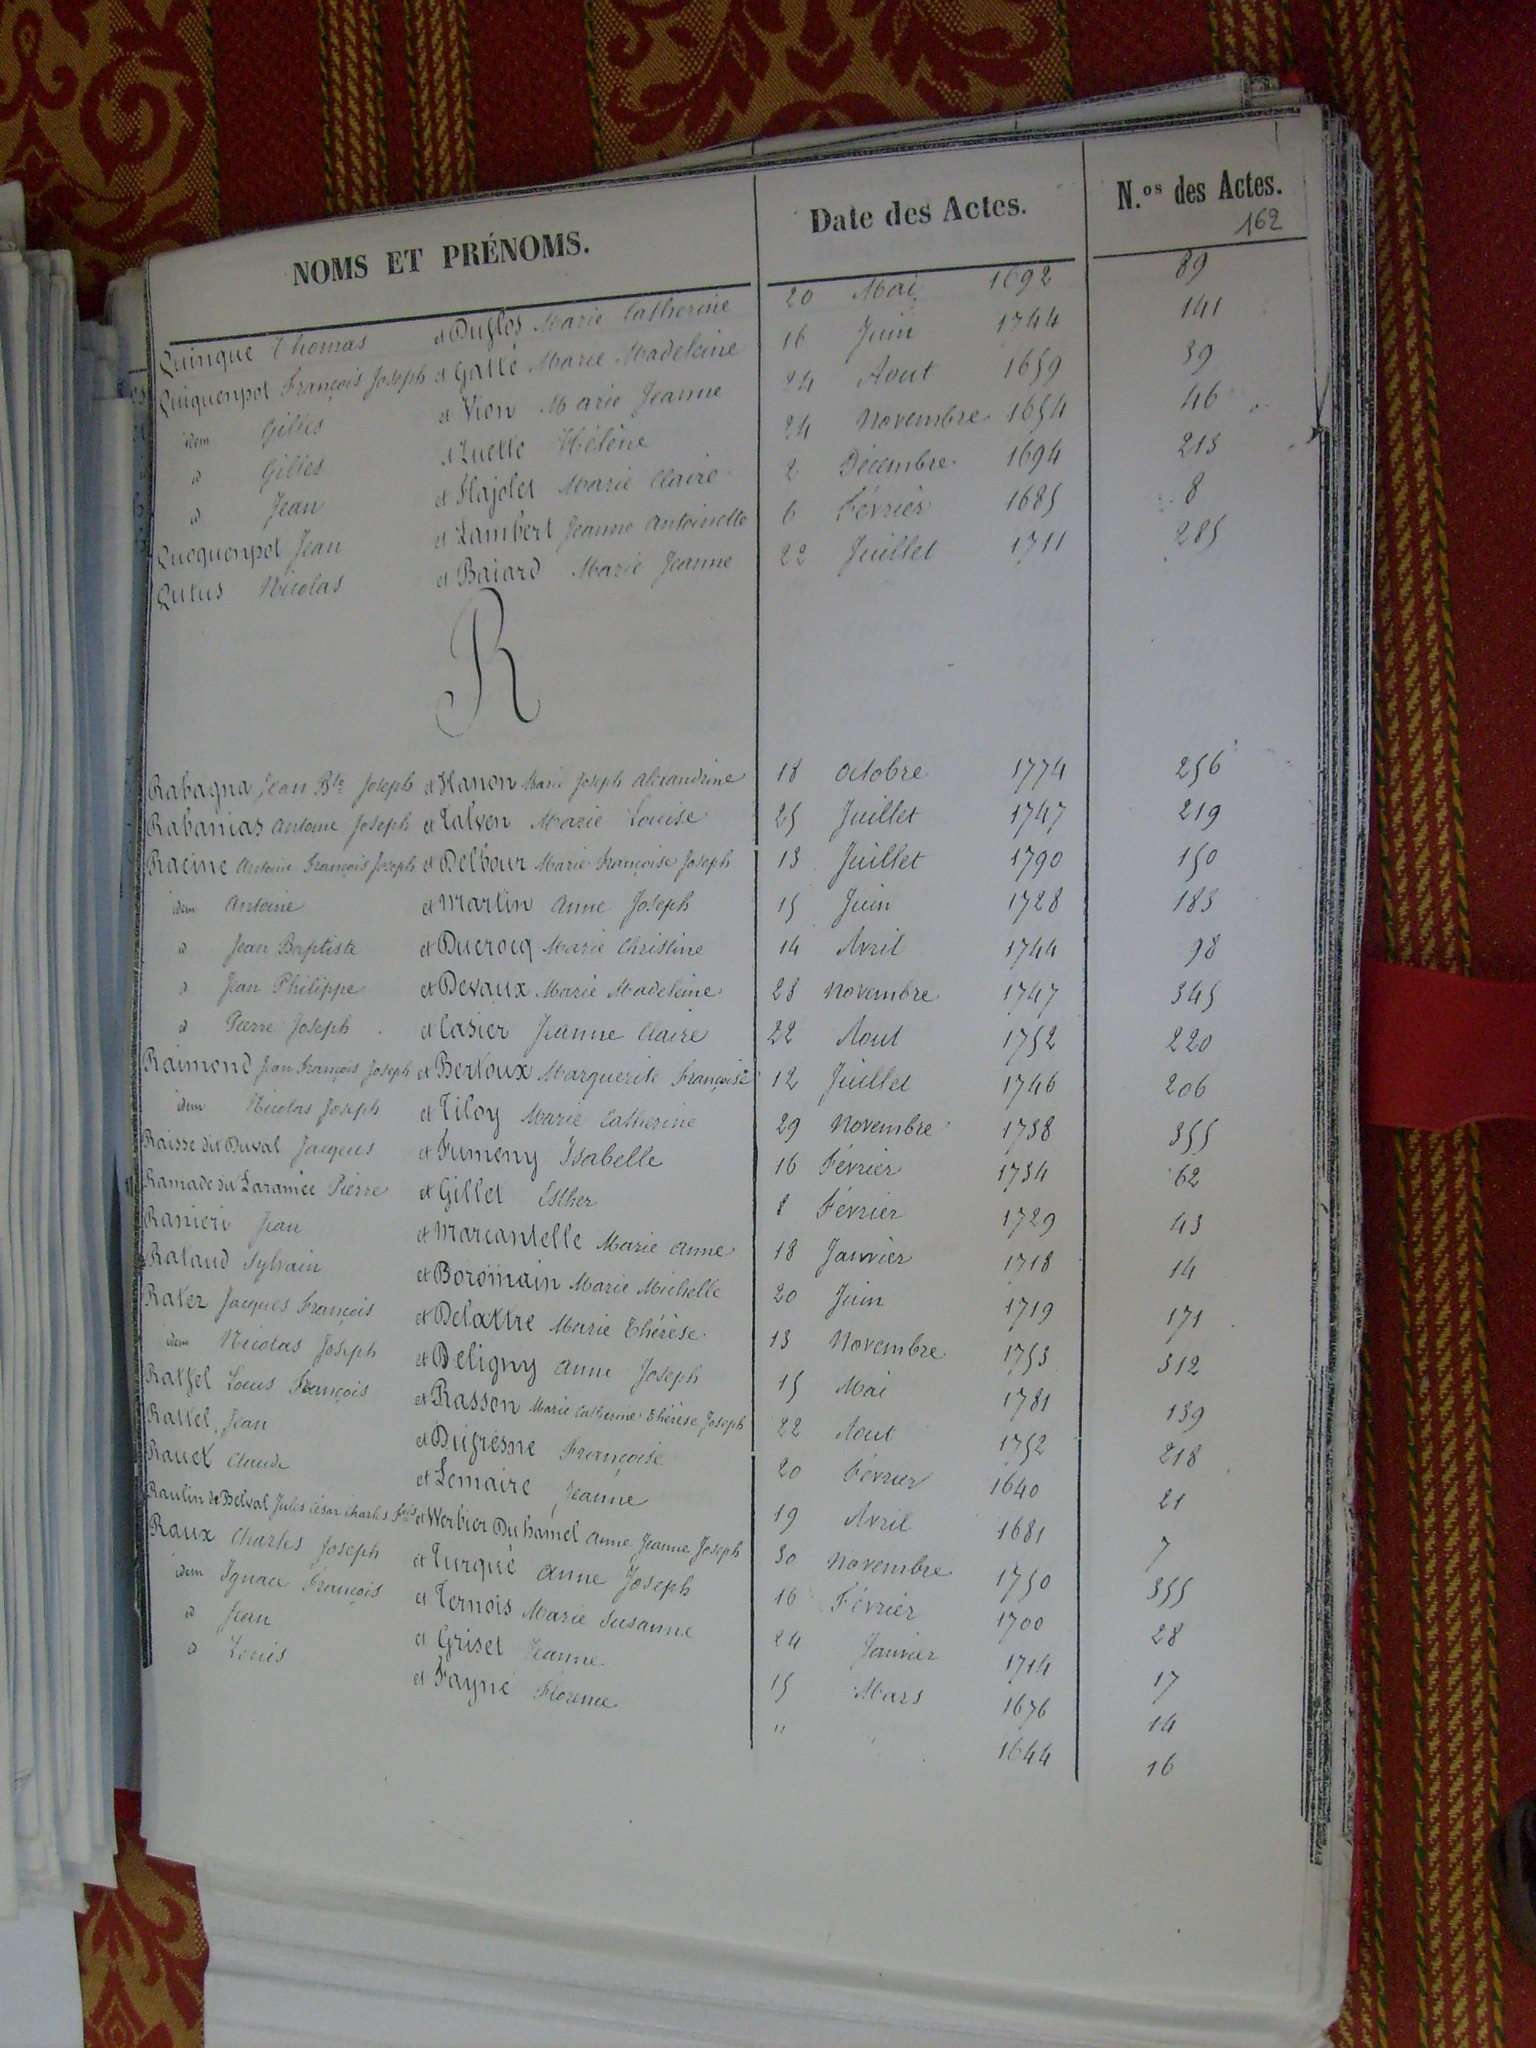 NOMS ET PRÉNOMS. Date des Actes. N.os des Actes.
162
Quinque Thomas et Duflos Marie Catherine 20 Mai 1692 89
Quiquenpot François Joseph et Gallé Marie Madeleine 16 Juin 1744 141
idem Gilles et Vion Marie Jeanne 24 Aout 1659 39
d Gilles et Luelle Hélène 24 Novembre 1654 46
d Jean et Flajolet Marie Claire 2 Décembre 1694 213
Quoquenpot Jean et Lambert Jeanne Antoinette 6 Février 1685 8
Qutus Nicolas et Baiard Marie Jeanne 22 Juillet 1711 285
R
Rabagna Jean Bte Joseph et Hanon Marie Joseph Alexandrine 18 Octobre 1774 256
Rabanias Antoine Joseph et Talven Marie Louise 25 Juillet 1747 219
Racine Antoine François Joseph et Delbour Marie Françoise Joseph 13 Juillet 1790 150
idem Antoine et Martin Anne Joseph 15 Juin 1728 183
d Jean Baptiste et Ducrocq Marie Christine 14 Avril 1744 98
d Jean Philippe et Devaux Marie Madeleine 23 Novembre 1747 345
d Pierre Joseph et Casier Jeanne Claire 22 Aout 1752 220
Raimond Jean François Joseph et Bertoux Marguerite Françoise 12 Juillet 1746 206
idem Nicolas Joseph et Tiloy Marie Catherine 29 Novembre 1738 355
Raisse dit Duval Jacques et Fumeny Isabelle 16 Février 1734 62
Ramade dit Laramée Pierre et Gillet Esther 8 Février 1729 43
Ranieri Jean et Marcantelle Marie Anne 18 Janvier 1718 14
Rataud Sylvain et Boromain Marie Michelle 20 Juin 1719 171
Ratez Jacques François et Delattre Marie Thérèse 13 Novembre 1753 312
idem Nicolas Joseph et Deligny Anne Joseph 15 Mai 1781 139
Ratfel Louis François et Rasson Marie Catherine Thérèse Joseph 22 Aout 1752 218
Rattel Jean et Dufresne Françoise 20 Février 1640 21
Rauet Claude et Lemaire Jeanne 19 Avril 1681 7
Raulin de Belval Jules César Charles Fois et Werbier Du hamel Anne Jeanne Joseph 30 Novembre 1750 355
Raux Charles Joseph et Turqué Anne Joseph 16 Février 1700 28
idem Ignace François et Ternois Marie Susanne 24 Janvier 1714 17
d Jean et Griset Jeanne 15 Mars 1676 14
d Louis et Fayne Florence " " 1644 16